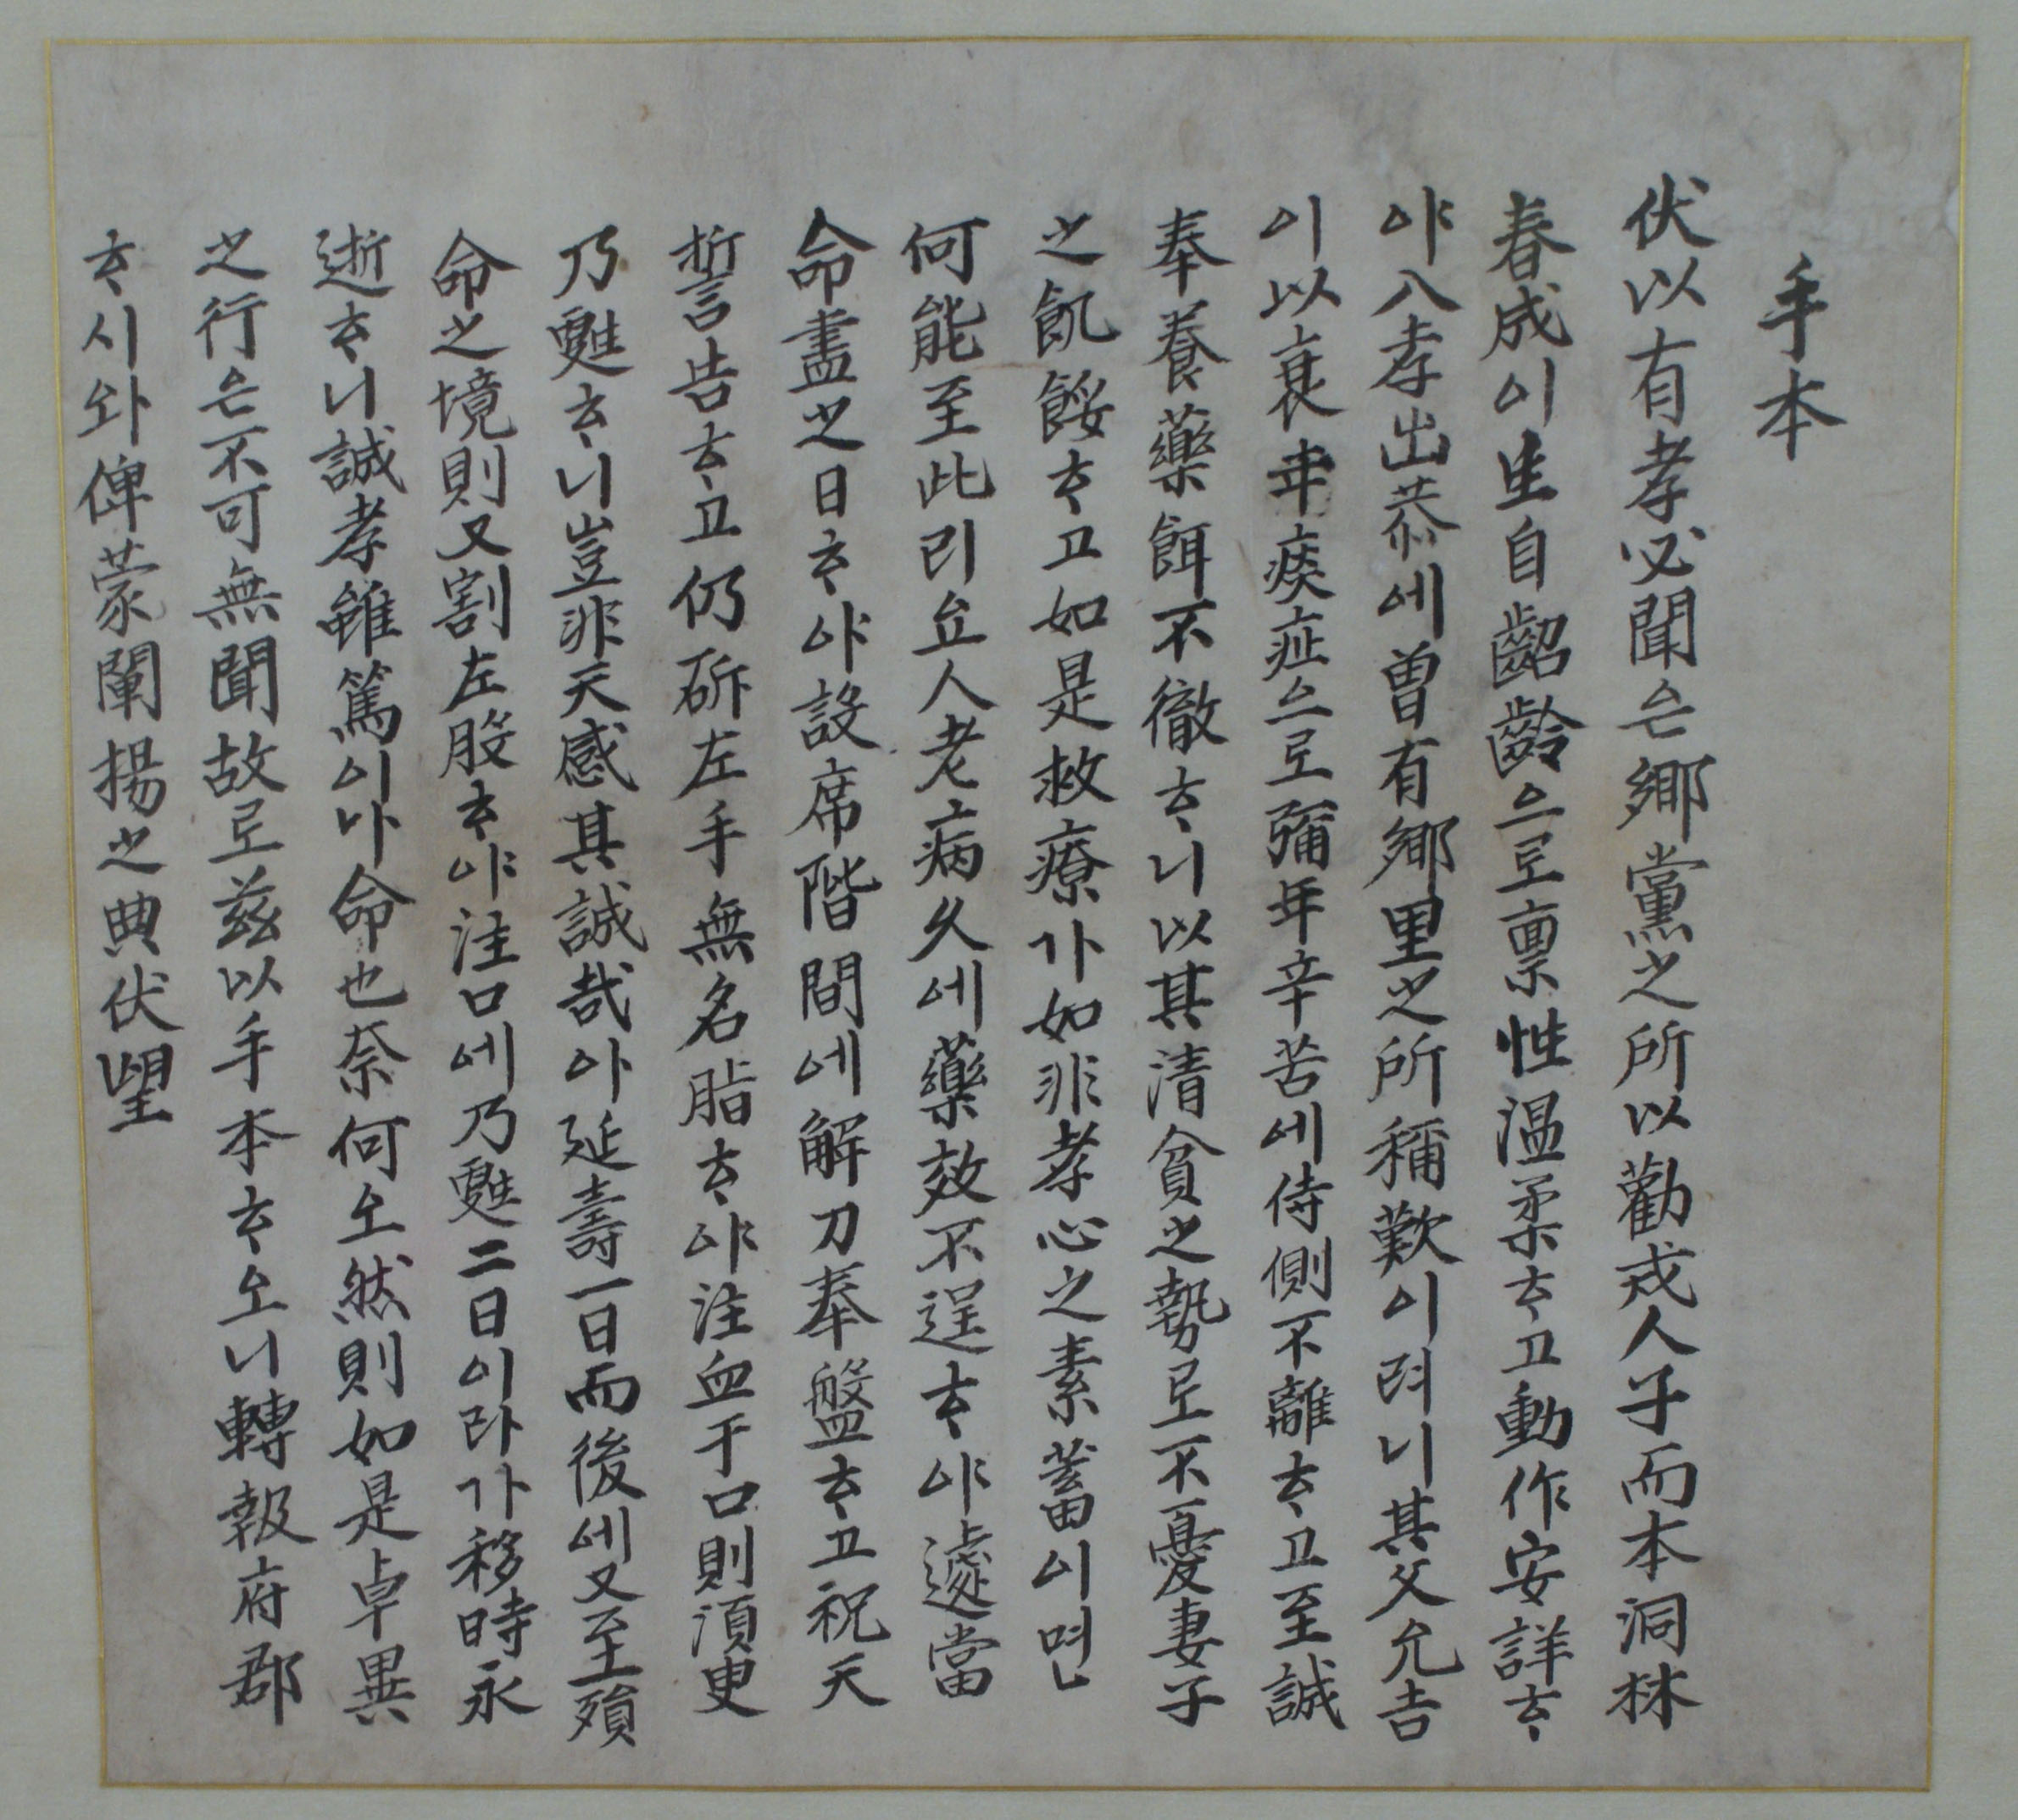 手本
伏以有孝必聞은鄕黨之所以勸戎人子而本洞林
春成이生自齠齡으로禀性溫柔ᄒᆞ고動作安詳ᄒᆞ
야入孝出恭에曾有鄕里之所稱歎이러니其父允吉
이以衰年痰症으로彌年辛苦에侍側不離ᄒᆞ고至誠
奉養藥餌不徹ᄒᆞ니以其淸貧之勢로不憂妻子
之飢餒ᄒᆞ고如是救療가如非孝心之素蓄이면
何能至此리요人老病久에藥效不逞ᄒᆞ야遽當
命盡之日ᄒᆞ야設席階間에解刀奉盤ᄒᆞ고祝天
誓告ᄒᆞ고仍斫左手無名脂ᄒᆞ야注血于口則須臾
乃甦ᄒᆞ니豈非天感其誠哉아延壽一日而後에又至殞
命之境則又割左股ᄒᆞ야注口에乃甦二日이라가移時永
逝ᄒᆞ니誠孝雖篤이나命也奈何오然則如是卓異
之行은不可無聞故로玆以手本ᄒᆞ오니轉報府郡
ᄒᆞ시와俾蒙闡揚之典伏望